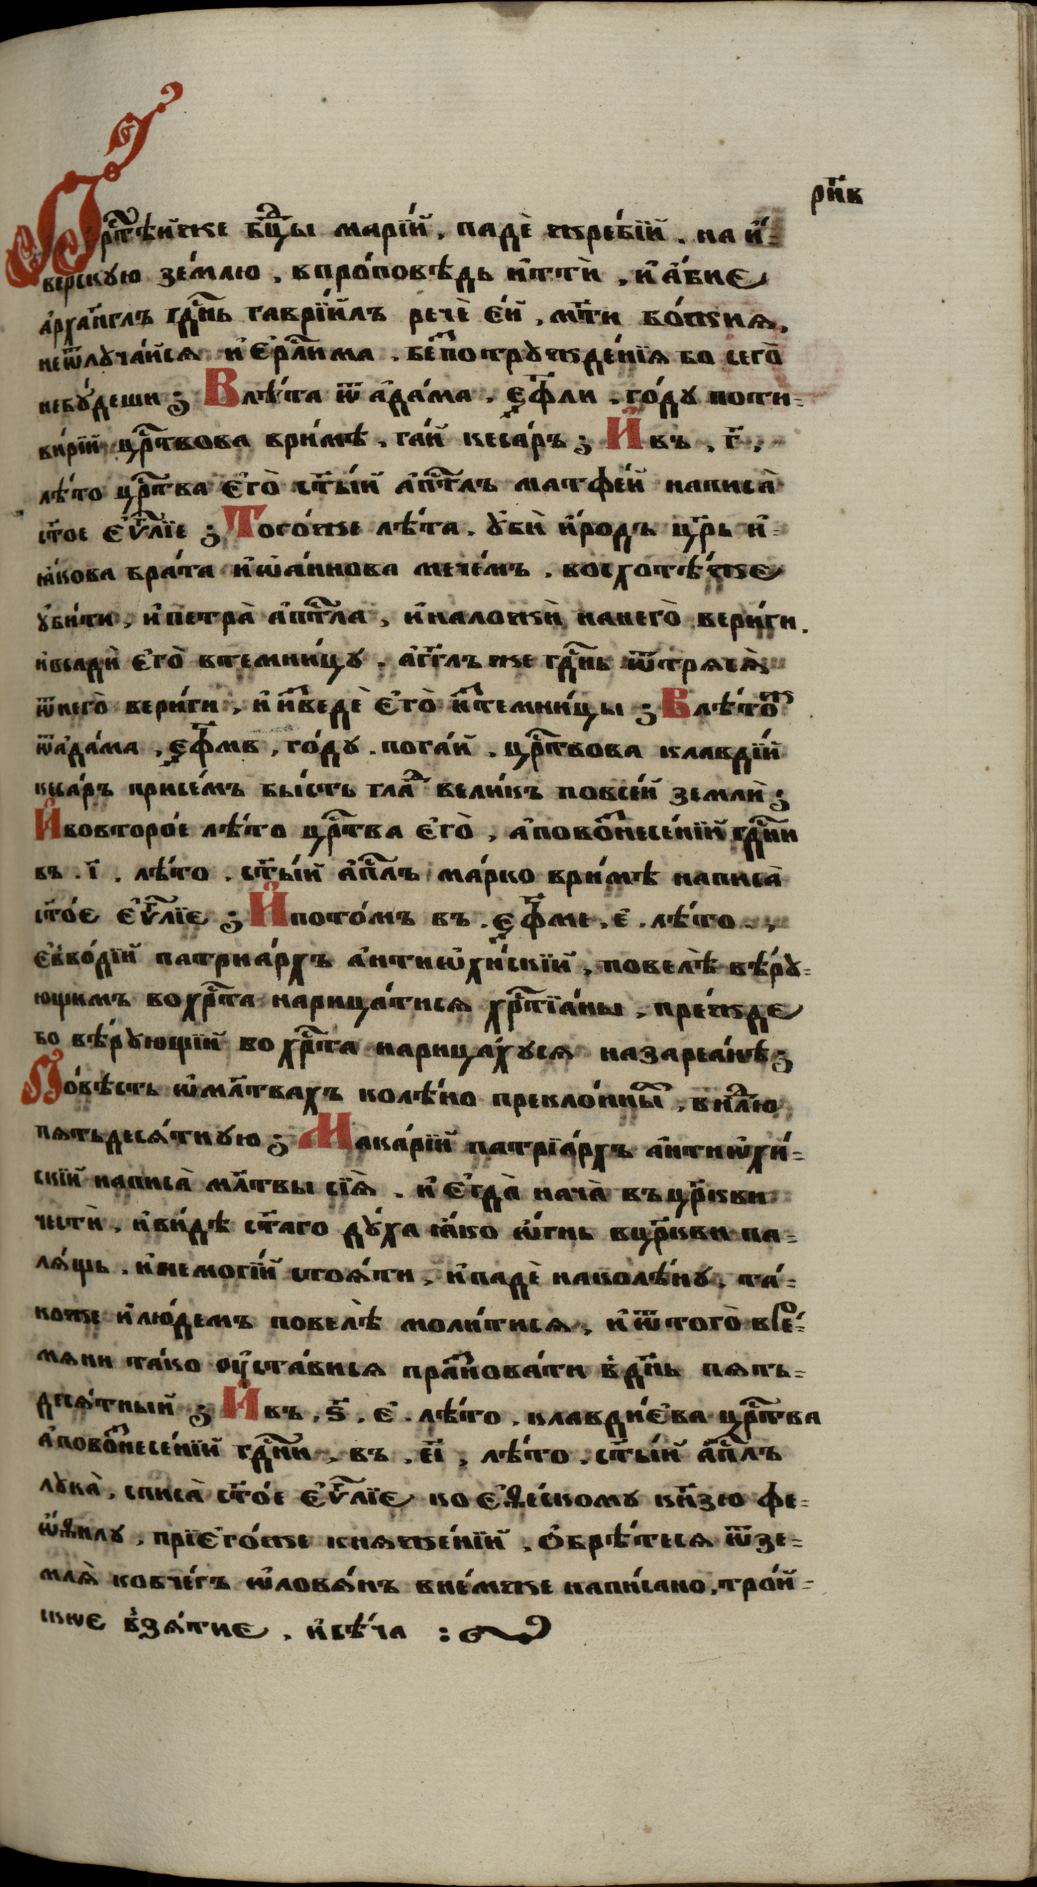 рн҃в
Прⷭ҇тѣ́йже бц҃ы марі́й, падѐ жре́бїй. на и҆́-
верскую зе́млю, в про́повѣдь и҆ттѝ, и҆ а҆́бие
а҆рха́гг҃лъ гдⷭ҇нь гаврїи́лъ речѐ е҆́й, мт҃и бо́жия,
неѿлуча́йся и҆е҆рⷭ҇ли́ма. беⷥпотружде́нїя бо сего̀
небу́деши ; В лѣ́та ѿ а҆да́ма, ҂еф҃ли, го́ду поти-
ви́рїй црⷭ҇твова ври́мѣ, га́й кеса́рь ; И҆ въ, г҃,
лѣ́то црⷭ҇тва е҆го̀ ст҃ы́й а҆пⷭ҇тлъ матфе́й написа̀
ст҃ое е҆ѵⷢ҇лїе ; Того́же лѣ́та, у҆бѝ и҆́родъ цр҃ь и҆-
я҆́кова бра́та и҆ѡа́ннова мече́мъ. восхотѣ́же
у҆би́ти, и҆ петра̀ а҆пⷭ҇тла, и҆ наложѝ нанего̀ вери́ги.
и҆всадѝ е҆го̀ втемни́цу. а҆́гг҃лъ же гдⷭ҇нь ѿтряся̀
ѿнего̀ вери́ги, и҆ и҆ⷥведѐ е҆го̀ и҆ⷥтемни́цы ; В лѣ́тоⷤ
ѿа҆да́ма, ҂еф҃мв, го́ду. пога́й, црⷭ҇твова клавді́й
кеса́рь присе́мъ бы́сть глаⷣ вели́къ повсе́й земли̾ ;
И҆ вовторо́е лѣ́то црⷭ҇тва е҆го̀, а҆повоⷥнесе́нїй гдⷭ҇ни
въ. і҃. лѣ́то. ст҃ы́й а҆пⷭ҇лъ ма́рко ври́мѣ написа̀
ст҃о́е е҆ѵⷢ҇лїе ; И҆ пото́мъ въ. ҂еф҃ме. е҃. лѣ́то.,
е҆во́дїй патриа́рхъ а҆нтиѡхи́скїй, повелѣ̀ вѣ́ру-
ющимъ во хрⷭ҇та нарица́тися хрⷭ҇тїа́ны, пре́жде
бо вѣ́рующїй во хрⷭ҇та нарица́хуся назареа́нѣ ;
По́вѣсть ѡ҆мл҃твахъ колѣ́но преклонныⷯ, внⷣ҇лю
пятьдеся́тную ; Мака́рїй патрїа́рхъ а҆нтиѡхи́-
скїй написа̀ мл҃твы сїя̀. и҆ е҆гда̀ нача̀ въ цр҃кви
честѝ, и҆ви́дѣ ст҃аго ду́ха я҆́ко ѡ҆́гнь вцр҃кви па-
ля́щь. и҆немогі́й стоя́ти, и҆ падѐ наколѣ́ну, та́-
коже и҆лю́демъ повелѣ̀ моли́тися, и҆ ѿтого̀ вре́-
мяни та́ко оу҆ста́вися праⷥнова́ти в̾ дн҃ь пять-
деся́тный ; И҆ въ, ѕ҃, е҃. лѣ́то, клавди́ева црⷭ҇тва
а҆повоⷥнесе́нїй гдⷭ҇ни, въ. еі҃, лѣ́то. ст҃ы́й а҆пⷭ҇лъ
лука̀, списа̀ ст҃о́е е҆ѵⷢ҇лїе ко е҆ѳе́скому кн҃зю фе-
ѡ҆́ѳилу, прїе҆го́же княже́нїй, ѡ҆брѣ́теся ѿзе-
мля̀ ковче́гъ ѡ҆ловя́нъ вне́мже напи́сано, тро́й-
ское в̾зя́тие, и҆сѣ́ча :